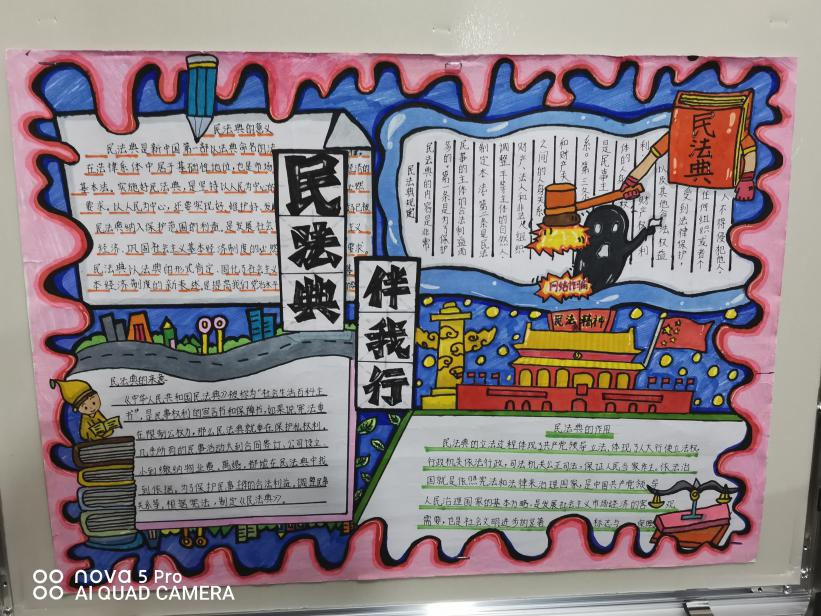 民法典
伴我行
民法典的意义
民法典是新中国第一部以法典命名的法
在法律体系中居于基础性地位,也是市场
基本法。实施好民法典,是坚持以人民为中心
要求,以人民为中心,还要实现好、维护好、发
民法典纳入保护范围的利益,是发展社会
经济、巩固社会主义基本经济制度的必然 要求,
民法典以法典的形式肯定、固化了社会主义
本经济制度的新表述,是提高我们党治
民法典规定
民法典的内容是非常
多的。第一条是为了保护
民事的主体的合法利益而
制定本法。第二条是民法
调整平等主体的自然人、
财产、法人和非法人组织
之间的人身关系
和财产关
系。第三条
是民事主
体的人身权
利、财产权利
以及其他合法权益
受到法律保护,
任何组织或者个
人不得侵犯他人
民法典
网络诈骗
民法精神
民法典的来意
《中华人民共和国民法典》被称为“社会生活百科全
书”,是民事权利的宣告书和保障书,如果说宪法重
在限制公权力,那么民法典就重在保护私权利,
几乎所有的民事活动大到合同签订、公司设立,
小到缴纳物业费、离婚,都能在民法典中找
到依据。为了保护民事主体的合法利益,调整民事
关系等,根据宪法,制定《民法典》。
民法典的作用
民法典的立法过程体现了共产党领导立法、体现了人大行使立法权,
行政机关依法行政,司法机关公正司法,保证人民当家作主。依法治
国就是依照宪法和法律来治理国家,是中国共产党领导
人民治理国家的基本方略,是发展社会主义市场经济的客观
需要,也是社会文明进步的显著 标志
nova 5 Pro
AI QUAD CAMERA